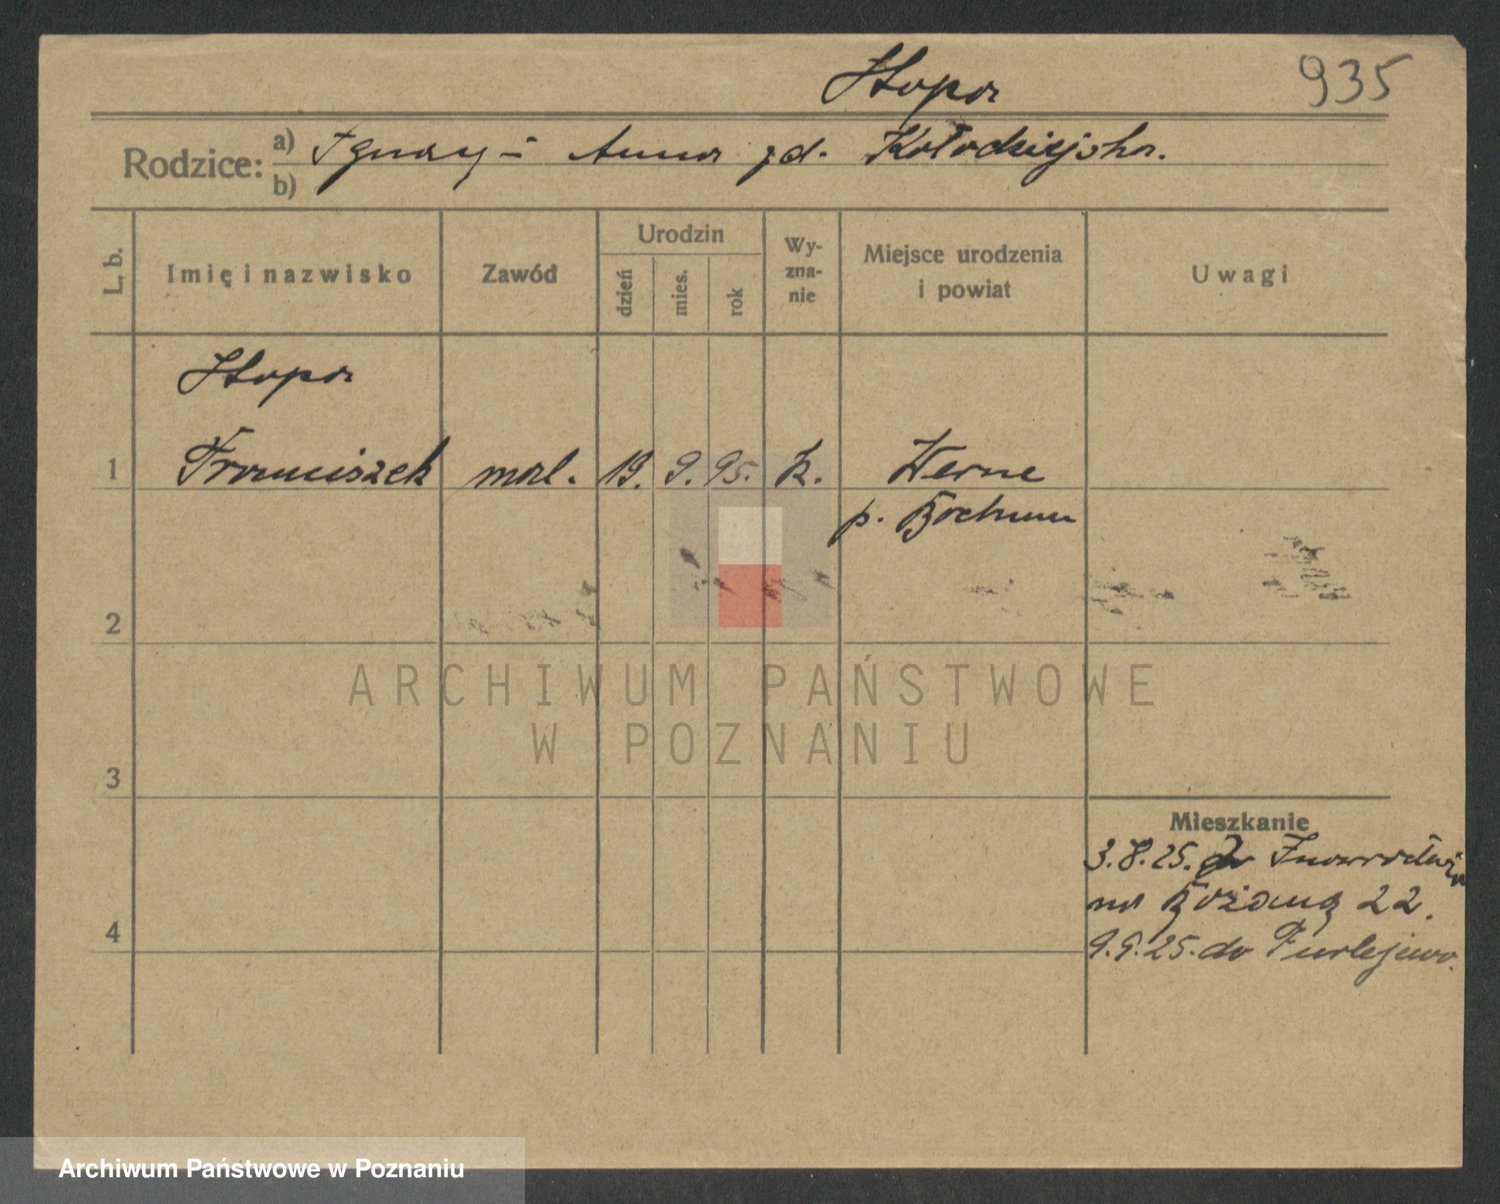 Stopa
935
Rodzice: a) Ignacy i Anna zd. Kołodziejska.
b)
L. b.
Imię i nazwisko
Zawód
Urodzin
dzień
mies.
rok
Wy-
zna-
nie
Miejsce urodzenia
i powiat
Uwagi
Franciszek mal. 19. 9. 95. k. Werne
1
p. Bochum
2
ARCHIWUM PAŃSTWOWE
W POZNANIU
3
Mieszkanie
3.8.25. do Inowrocławia
22.
4
9.9.25. do Turlejewo.
Archiwum Państwowe w Poznaniu